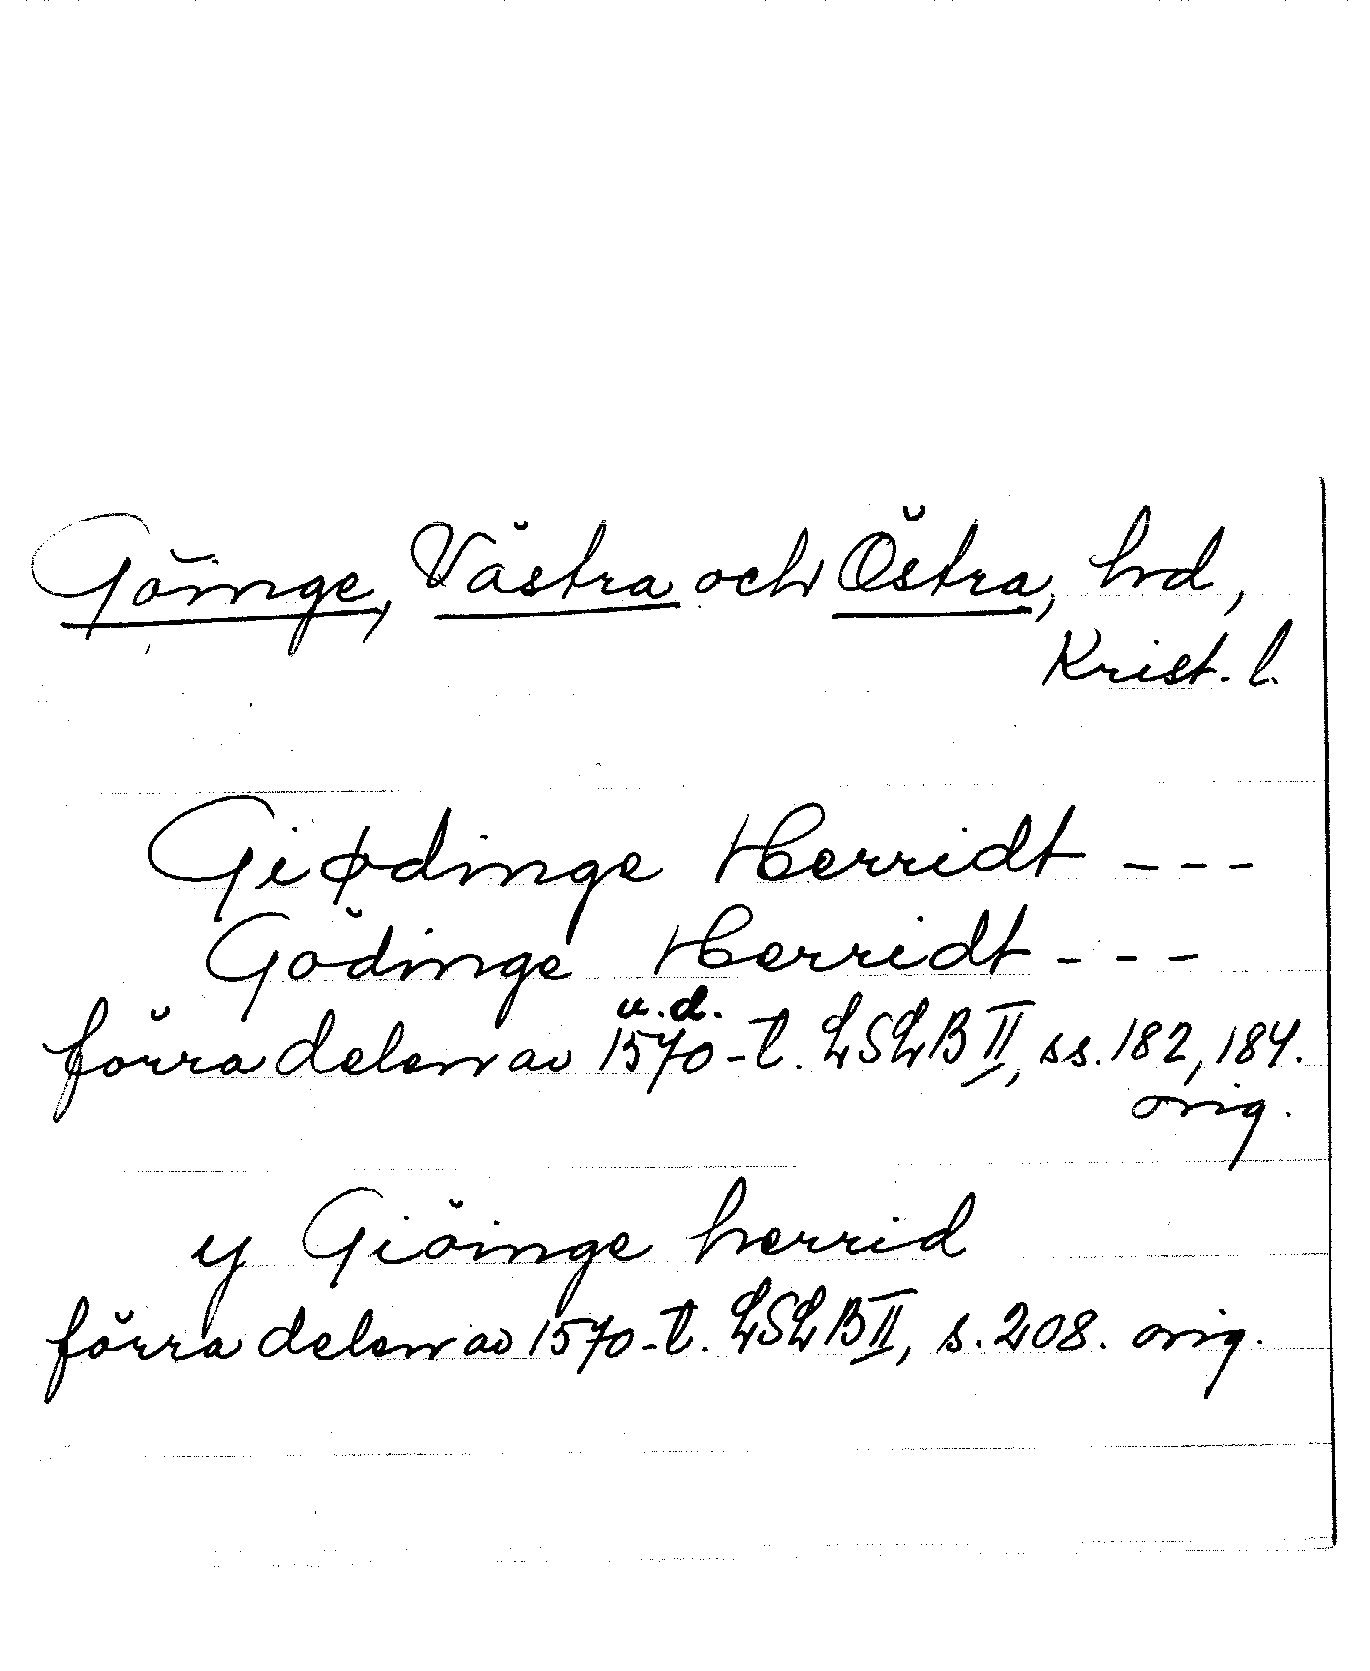 Göinge, Västra och Östra, hd,
Krist. l.
Giødinge Herridt - - -
Gödinge Herridt - - -
u.d.
förra delen av 1570-t. LSLB II, ss. 182, 184.
orig.
y Giöinge herrid
förra delen av 1570-t. LSLB II, s. 208. orig.